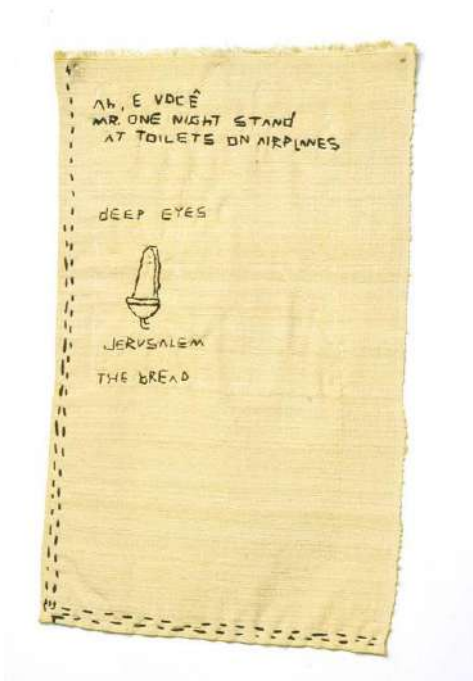 Ah, E VOCÊ
MR. ONE NIGHT STAND
AT TOILETS ON AIRPLANES
DEEP EYES
JERUSALEM
THE BREAD